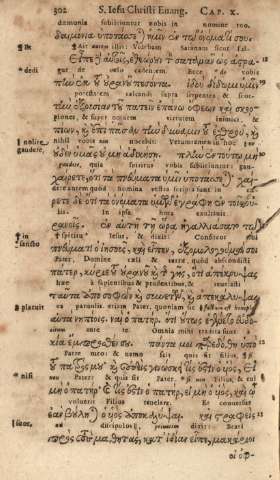 302 S. Iesu Christi Euang. CAP. X.
dæmonia subiiciuntur nobis in nomine tuo.
δαιμόνια ὑποτάσσε) ἡμῖν ἐν τῷ ὀνόματί σου.
Ait autem illis: Videbam Satanam sicut ful-
Εἶπε αὐτοῖς, ἐθεώρουν τ σατανᾶν ὡς ἀστρα-
dedi gur de cælo cadentem. Ecce do vobis
πὴν ἐκ τ οὐρανοῦ πεσόντα. ἰδοὺ δίδωμι ὑμῖν
potestatem calcandi supra serpentes
τὴν ἐξουσίαν τ πατεῖν ἐπάνω ὄφεων καὶ σκορ-
piones, & super omnem virtutem inimici, &
πίων, κ ἐπὶ πᾶσαν τὴν δύναμιν τ ἐχθροῦ, κ
nolite gaudere, nihil vobis nocebit: Veruntamen in hoc
οὐδὲν ὑμᾶς οὐ μὴ ἀδικήσῃ. πλὴν ἐν τούτῳ μὴ
quia spiritus vobis subiiciuntur: gau-
χαίρετε, ὅτι τὰ πνεύματα ὑμῖν ὑποτάσσε) χαί-
dete autem quod nomina vestra scripta sunt in
ρετε δὲ ὅτι τὰ ὀνόματα ὑμῶν ἐγράφη ἐν τοῖς οὐ-
In ipsa hora exultauit
ρανοῖς. ἐν αὐτῇ τῇ ὥρᾳ ἠγαλλιάσατο τῷ
in sancto spiritu Iesus, & dixit: Confiteor tibi
πνεύματι ὁ ἰησοῦς, καὶ εἶπεν, ἐξομολογοῦμαί σοι
Pater, Domine cæli & terræ, quod abscondisti
πάτερ, κύριε τ οὐρανοῦ κ τ γῆς, ὅτι ἀπέκρυψας
hæc à sapientibus & prudentibus, & reuelasti
ταῦτα ἀπὸ σοφῶν κ συνετῶν, κ ἀπεκάλυψας
placuit ea paruulis etiam Pater, quoniam sic
αὐτὰ νηπίοις. ναὶ ὁ πατήρ, ὅτι οὕτως ἐγένετο εὐδο-
ante te. Omnia mihi tradita sunt
κία ἔμπροσθέν σου. πάντα μοι παρεδόθη ὑπὸ
Pater meo: & nemo scit quis sit filius,
τ πατρός μου κ οὐδεὶς γινώσκει τίς ἐστιν ὁ υἱὸς, εἰ
nisi Pater: & quis sit Pater, nisi Filius, & cui
μὴ ὁ πατήρ κ τίς ἐστιν ὁ πατὴρ, εἰ μὴ ὁ υἱὸς, καὶ ᾧ
voluerit Filius reuelare. Et conuersus
ἐὰν βούλη) ὁ υἱὸς ἀποκαλύψαι. καὶ στραφεὶς
suos, ad discipulos dixit: Beati
πρὸς τοὺς μαθητὰς, κατ' ἰδίαν εἶπε, μακάριοι
οἱ ὀφ-